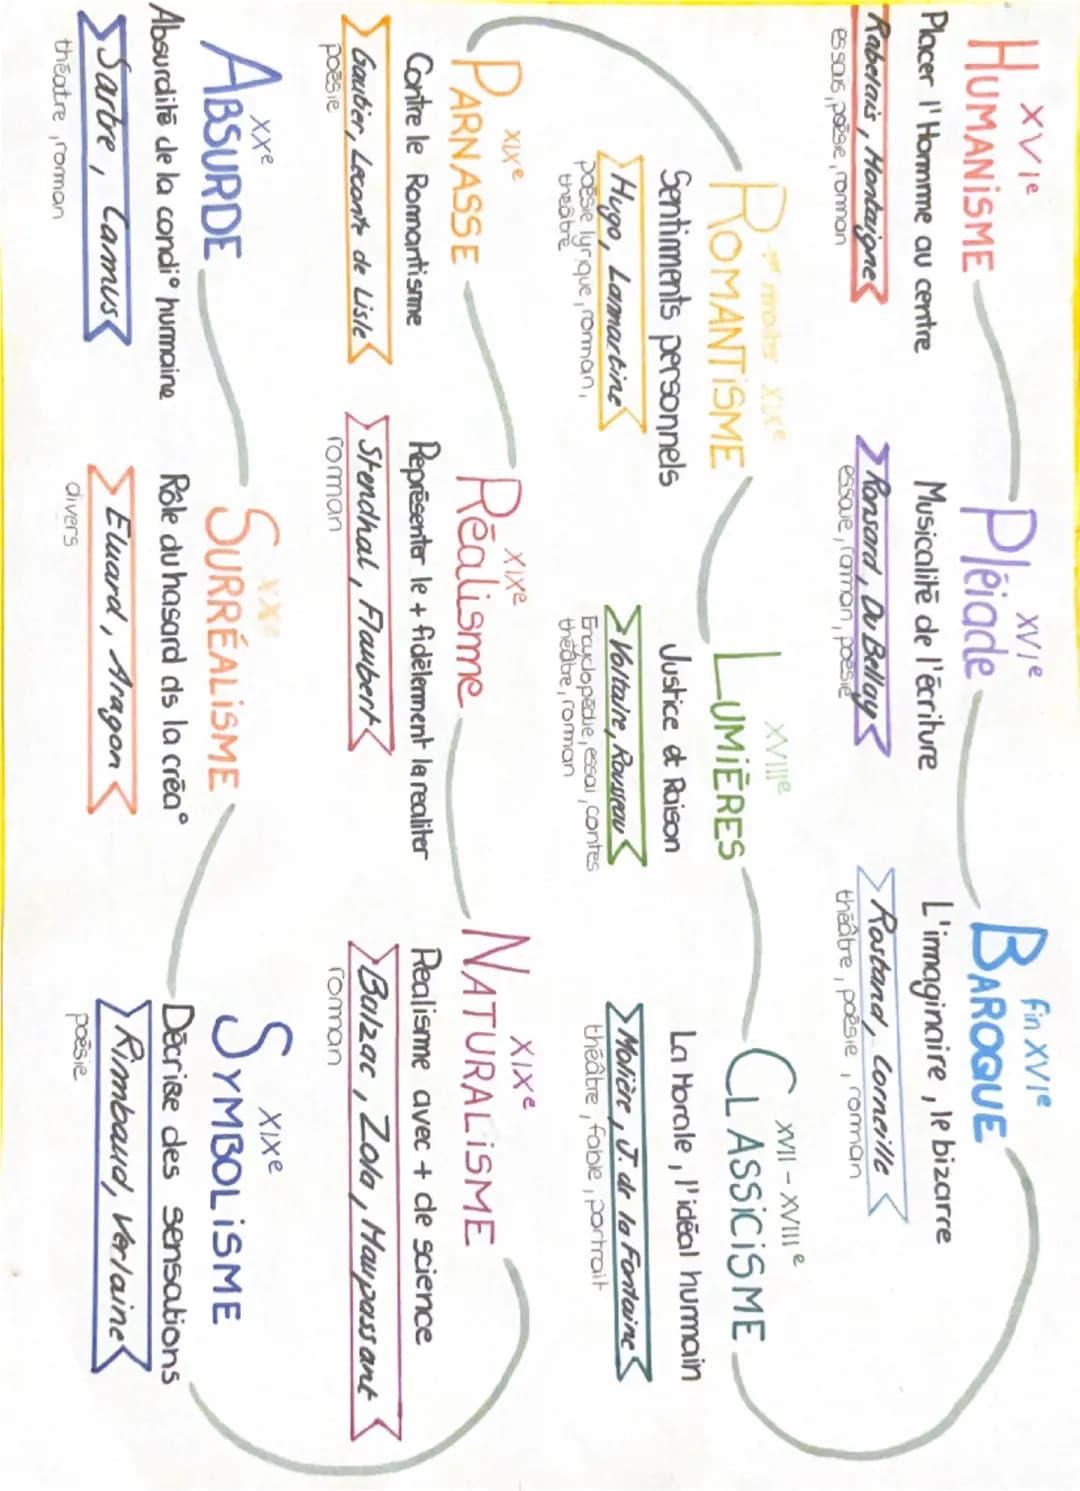 XVIe
HUMANISME
Placer l'Homme au centre
Rabelais, Montaigne
essais, poésie, roman
XVIe
Pléiade
Musicalité de l'écriture
Ronsard, Du Bellay
essaie, roman, poésie
fin XVIe
BAROQUE
L'imaginaire, le bizarre
Rostand, Corneille
théâtre, poésie, roman
XVII - XVIIIe
CLASSICISME
La Morale, l'idéal humain
Molière, J. de la Fontaine
théâtre, fable, portrait
XVIIIe
LUMIÈRES
Justice et Raison
Voltaire, Rousseau
Encyclopédie, essai, contes
théâtre, roman
XIXe
ROMANTISME
Sentiments personnels
Hugo, Lamartine
poésie lyrique, roman,
théâtre
XIXe
PARNASSE
Contre le Romantisme
Gautier, Leconte de Lisle
poésie
XIXe
Réalisme
Représenter le + fidèlement la realiter
Stendhal, Flaubert
roman
XIXe
NATURALISME
Realisme avec + de science
Balzac, Zola, Maupassant
roman
XIXe
SYMBOLISME
Décrire des sensations
Rimbaud, Verlaine
poésie
XXe
SURRÉALISME
Rôle du hasard ds la créa°
Eluard, Aragon
divers
XXe
ABSURDE
Absurdité de la condi° humaine
Sartre, Camus
théatre, roman